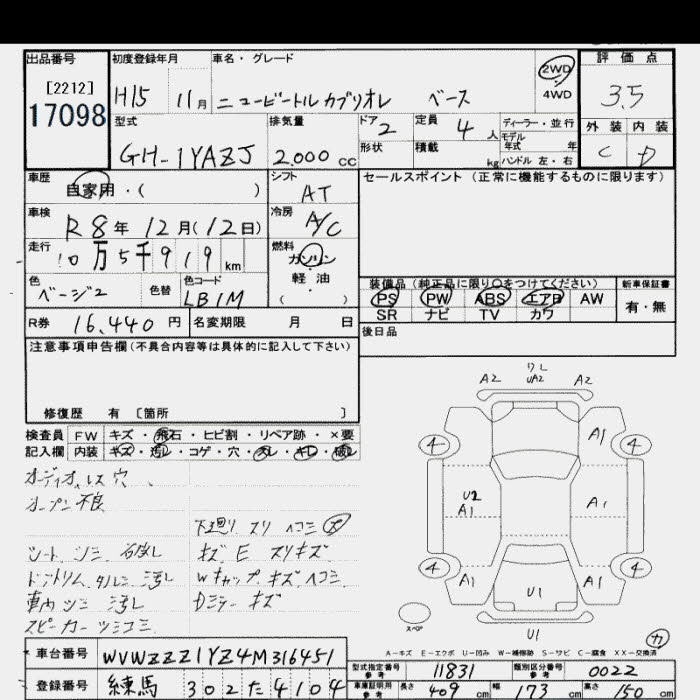 出品番号 初度登録年月 車名・グレード 評価点
[2212] 2WD 4WD
17098 H15 11月 ニュービートル カブリオレ ベース 3.5
型式 排気量 ドア 2 定員 4人 ディーラー・並行 外装 内装
GH-1YAZJ 2.000cc 形状 積載 kg モデル年式 年 C D
ハンドル 左・右
車歴 自家用・( ) シフト AT セールスポイント (正常に機能するものに限ります)
車検 R8年12月(12日) 冷房 A/C
走行 10万5千919km 燃料 ガソリン・軽油 ( )
色 ベージ2 色替 色コード LB1M
装備品(純正品に限り○をつけてください) 新車保証書
PS PW ABS エアB AW 有・無
SR ナビ TV カワ
R券 16,440円 名変期限 月 日 後日品
注意事項申告欄(不具合内容等は具体的に記入して下さい)
修復歴 有 [箇所 ]
検査員 FW キズ・飛石・ヒビ割・リペア跡・×要
記入欄 内装 キズ・汚レ・コゲ・穴・
オーディオレス 穴
オープン不良
下廻り スリ ヘコミ
シート
キズ E スリキズ
ドアトリム タルミ 汚レ
Wキャップ キズ ヘコミ
車内 シミ 汚レ
Dミラー キズ
スピーカー
ワレ
A2 UA2 A2
4 A1 4
U2 A1 A1
4 A1 A1 4
U1
スペア U1 カ
A-キズ E-エクボ U-凹み W-補修跡 S-サビ C-腐食 XX-交換済
車台番号 WVWZZZ1YZ4M316451
型式指定番号 参考 11831 類別区分番号 参考 0022
登録番号 練馬 302 た 4104
車庫証明用 参考 長さ 409cm 幅 173cm 高さ 150cm